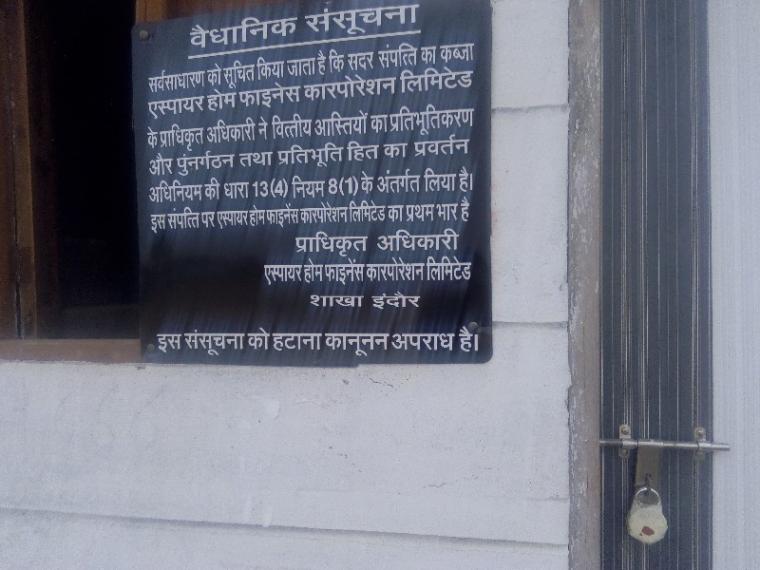 वैधानिक संसूचना
सर्वसाधारण को सूचित किया जाता है कि सदर संपत्ति का कब्जा
एस्पायर होम फाइनेंस कारपोरेशन लिमिटेड
के प्राधिकृत अधिकारी ने वित्तीय आस्तियों का प्रतिभूतिकरण
और पुंनर्गठन तथा प्रतिभूति हित का प्रवर्तन
अधिनियम की धारा 13(4) नियम 8(1) के अंतर्गत लिया है।
इस संपत्ति पर एस्पायर होम फाइनेंस कारपोरेशन लिमिटेड का प्रथम भार है
प्राधिकृत अधिकारी
एस्पायर होम फाइनेंस कारपोरेशन लिमिटेड
शाखा इंदौर
इस संसूचना को हटाना कानूनन अपराध है।